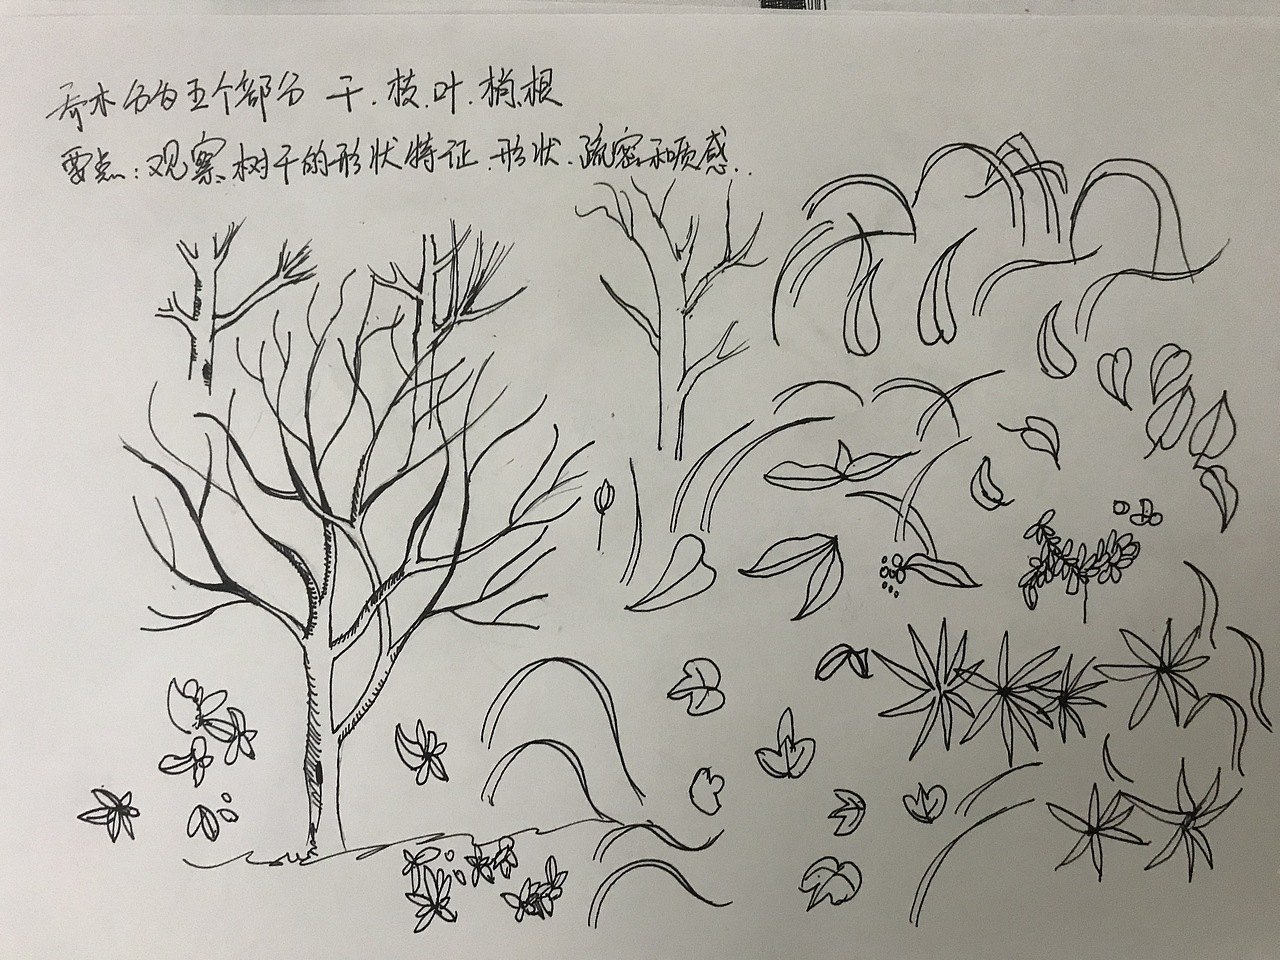 乔木分为五个部分 干.枝.叶.梢.根
要点:观察树干的形状特征.形状.疏密和质感..